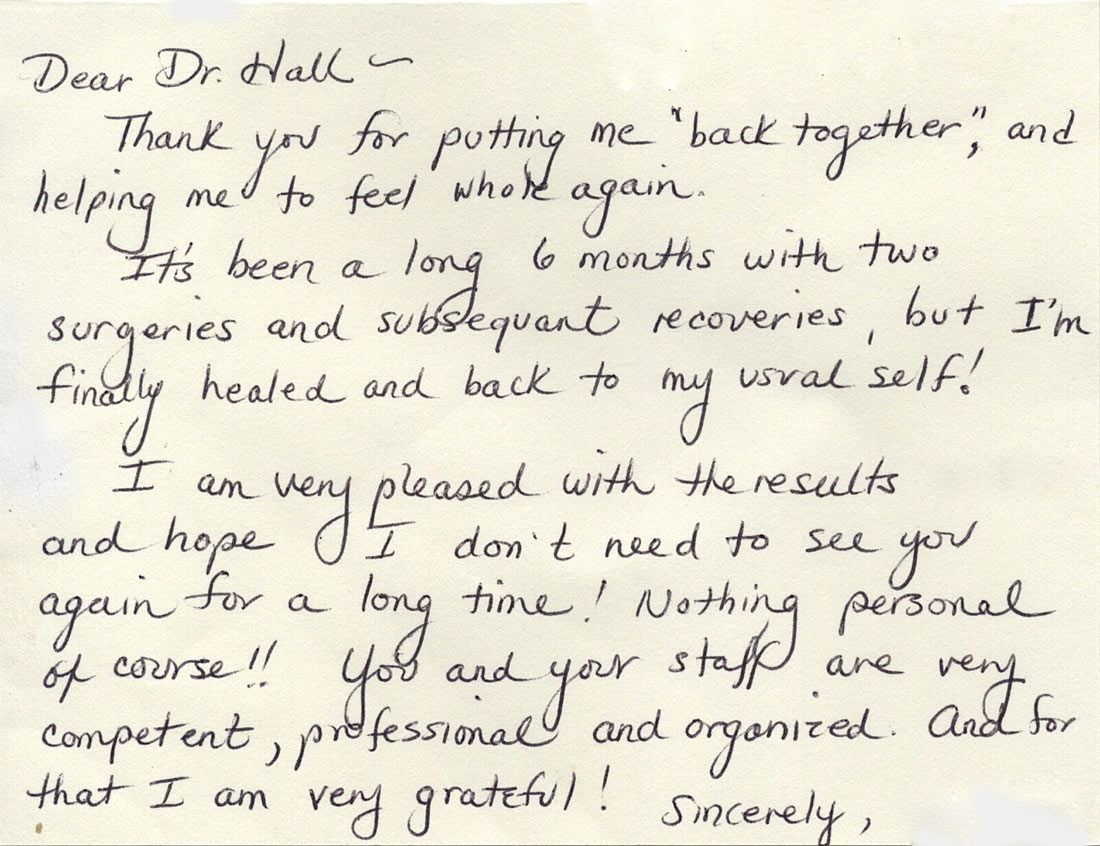 Dear Dr. Hall ~
Thank you for putting me "back together", and
helping me to feel whole again.
It's been a long 6 months with two
surgeries and subsequant recoveries, but I'm
finally healed and back to my usual self!
I am very pleased with the results
and hope I don't need to see you
again for a long time! Nothing personal
of course!! You and your staff are very
competent, professional and organized. And for
that I am very grateful!
Sincerely,